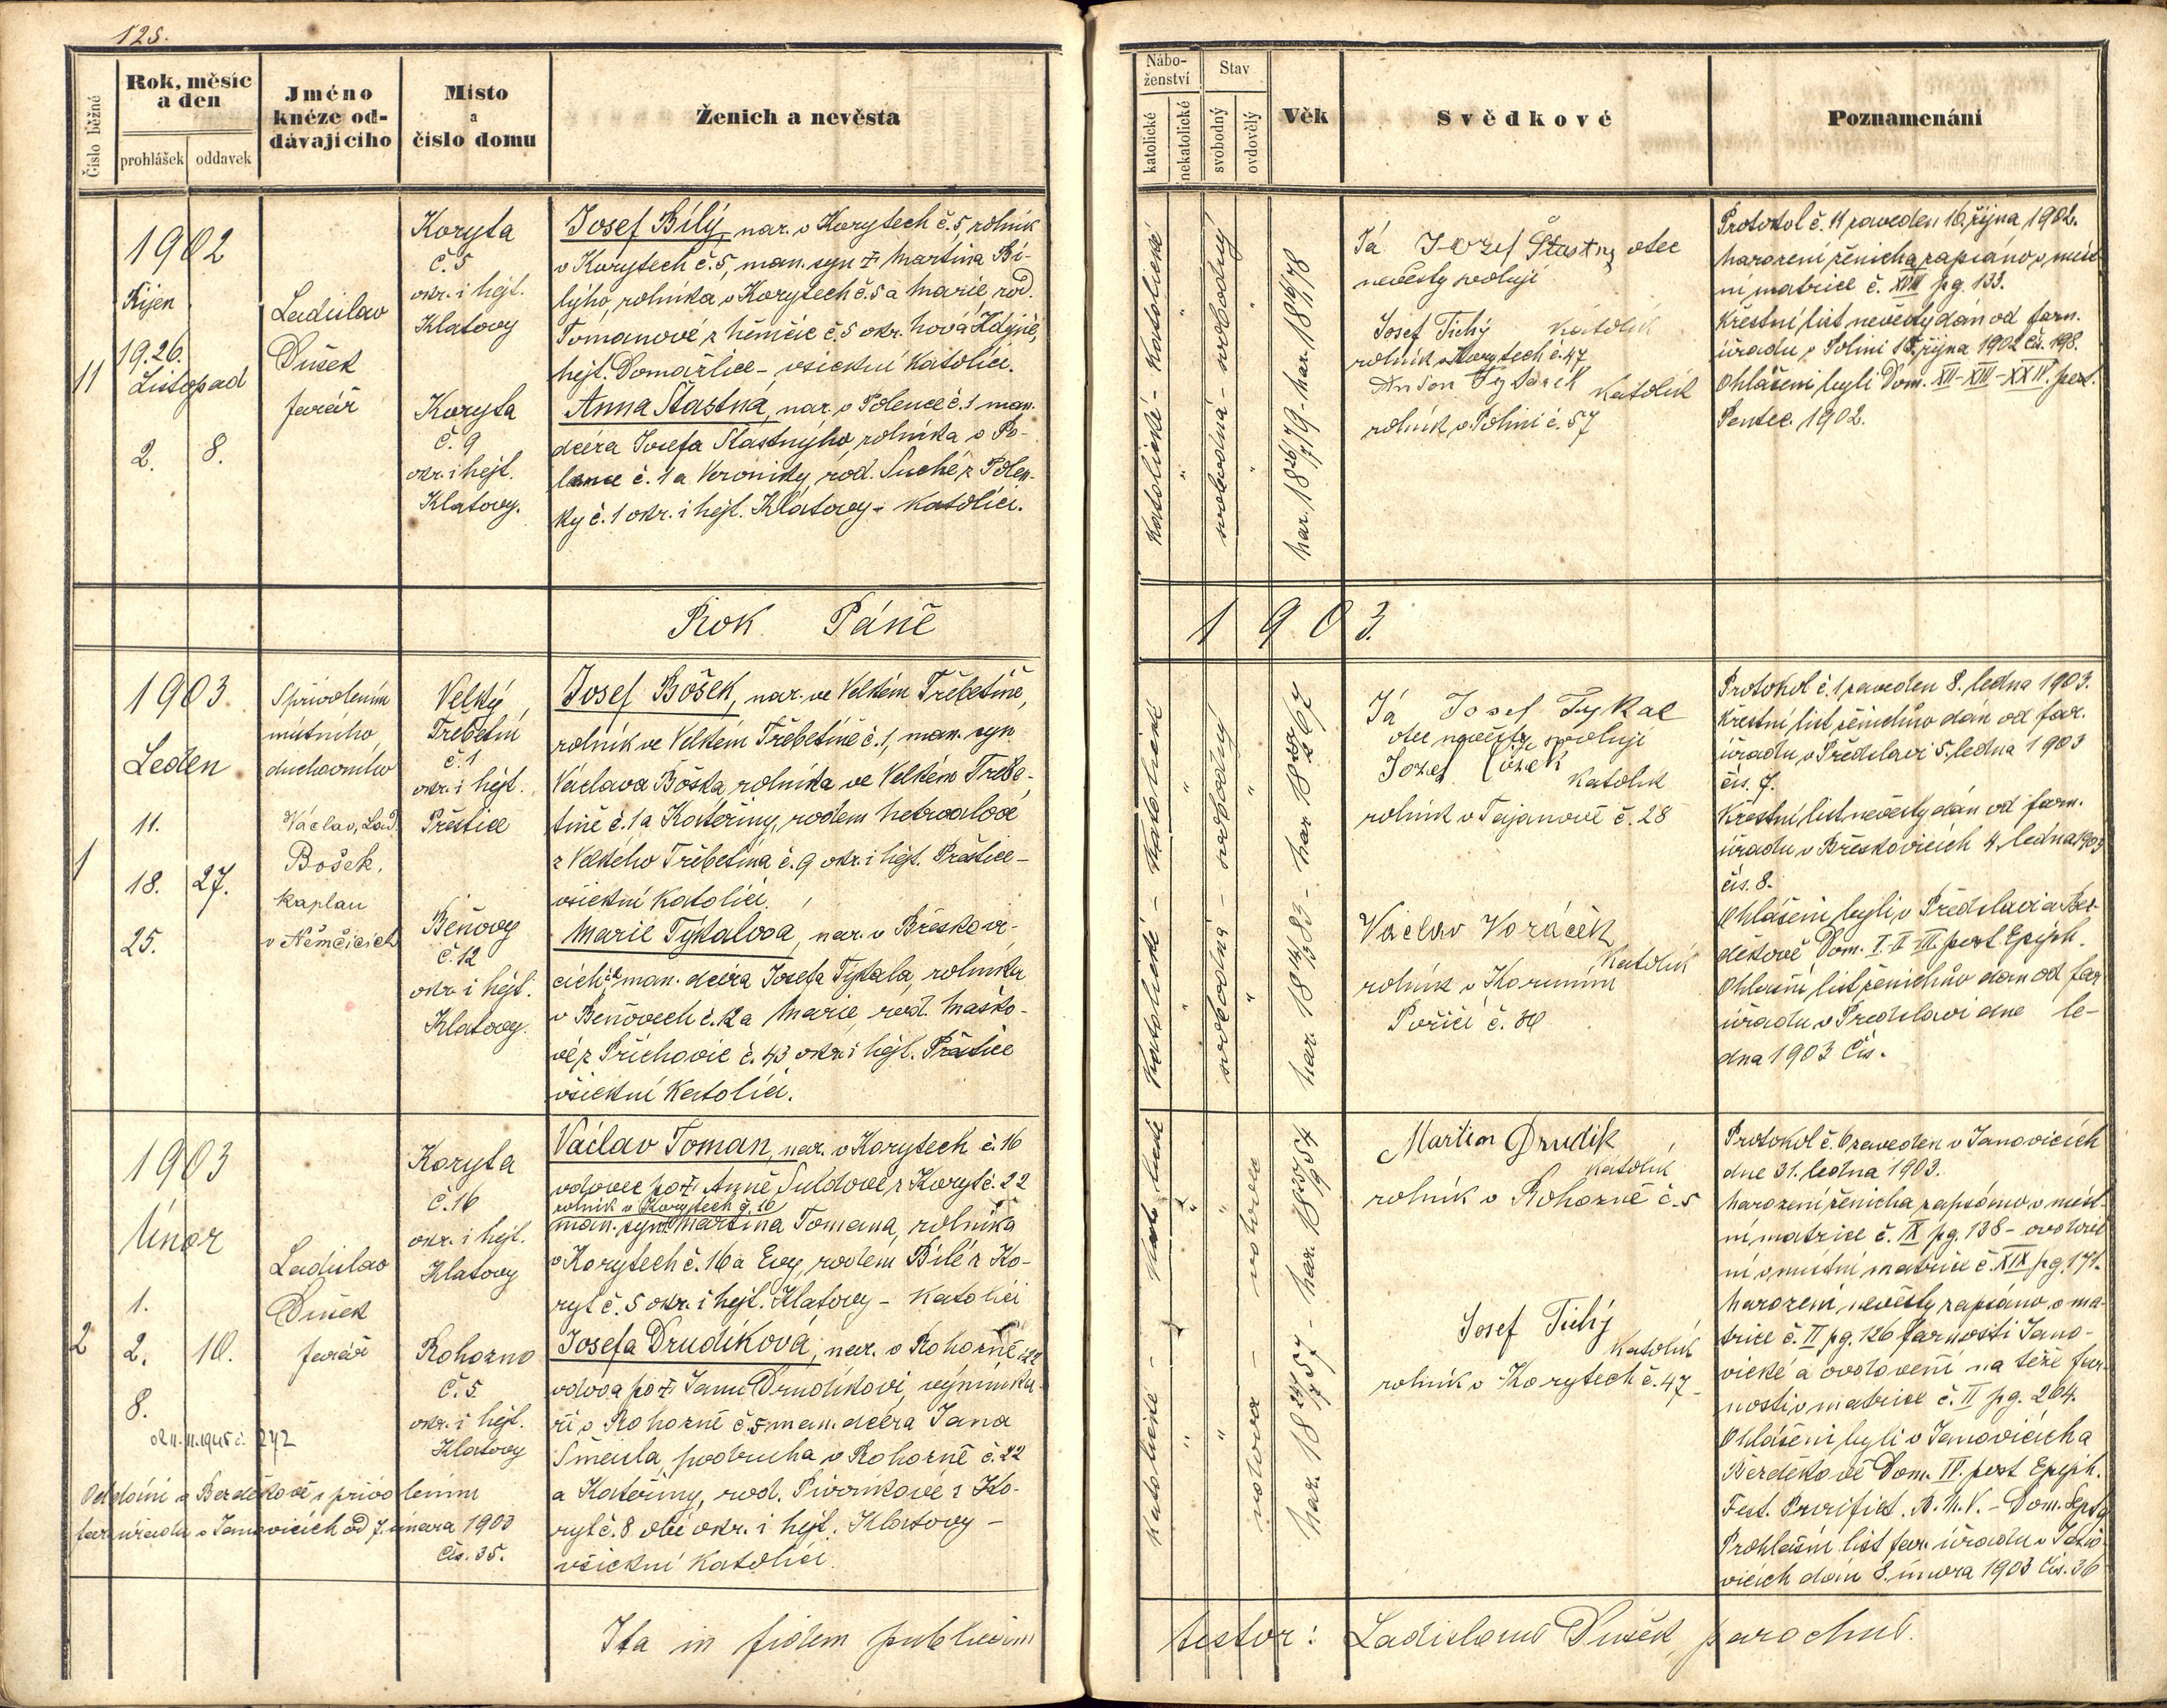 125.
Číslo běžné
Rok, měsíc
a den
prohlášek
oddavek
Jméno
kněze od-
dávajícího
Místo
a
číslo domu
Ženich a nevěsta
Nábo-
ženství
katolické
nekatolické
Stav
svobodný
ovdovělý
Věk
Svědkové
Poznamenání
11
1902
Říjen
19. 26.
Listopad
2.
8.
Ladislav
Dušek
farář
Koryta
č. 5
okr. i hejt.
Klatovy
Koryta
č. 9
okr. i hejt.
Klatovy.
Josef Bílý, nar. v Korytech č. 5, rolník
v Korytech č. 5, man. syn † Martina Bí-
lýho, rolníka v Korytech č. 5 a Marie, rod.
Tomanové z Němčic č. 5 okr. Nová Kdyně,
hejt. Domažlice – všickni katolíci.
Anna Šťastná, nar. v Polence č. 1 man.
dcéra Josefa Šťastnýho, rolníka v Po-
lence č. 1 a Veroniky, rod. Suché z Polen-
ky č. 1 okr. i hejt. Klatovy – katolíci.
Katolické - Katolické
svobodná - svobodný
nar. 18 26/7 79 - nar. 18
Já Jozef Štastny otec
nevěsty svoluji
Josef Tichý katolík
rolník v Korytech č. 47
Anton katolík
rolník v Polini č. 57
Protokol č. 11 zaveden 16. října 1902.
Narození ženicha zapsáno v míst-
ní matrice č. XVII pg. 133.
Křestní list nevěsty dán od farn.
úřadu v Polini 15. října 1902 čís. 198.
Ohlášeni byli Dom. XII - XIII - XXIV. post.
Pentec. 1902.
Rok Páně
1903.
1
1903.
Leden
11.
18.
27.
25.
S přivolením
místního
duchovního
Václav, Lad.
Bošek,
kaplan
v Němčicích
Velký
Třebetín
č. 1
okr. i hejt.
Přeštice
Beňovy
č. 12
okr. i hejt.
Klatovy.
Josef Bošek, nar. ve Velkém Třebetíně,
rolník ve Velkém Třebetíně č. 1, man. syn
Václava Boška, rolníka ve Velkém Třebe-
tíně č. 1 a Kateřiny, rodem Netrvalové
z Velkého Třebetína č. 9 okr. i hejt. Přeštice –
všickni katolíci.
Marie Týkalová, nar. v Břeskovi-
cích man. dcéra Josefa Týkala, rolníka
v Beňovech č. 12 a Marie, rod. Maško-
vé z Příchovic č. 43 okr. i hejt. Přeštice
všickni katolíci.
Katolické - Katolické
svobodná - svobodný
Já Josef Tykal
otec nevěsty svoluji
Jozef Cízek
katolík
rolník v Tajanově č. 28
Václav Voráček
katolík
rolník v
Poříčí č. 30
Protokol č. 1 zaveden 8. ledna 1903.
Křestní list ženichův dán od far.
úřadu v Předslavi 5. ledna 1903
čís. 7.
Křestní list nevěsty dán od farn.
úřadu v Břeskovicích 4. ledna 1903
čís. 8.
Ohlášeni byli v Předslavi a Bez-
děkově Dom. I. II. III. post Epiph.
Ohlašní list ženichův dán od far.
úřadu v Předslavi dne le-
dna 1903 čís.
2
1903
Únor
1.
2.
10.
8.
Ladislav
Dušek
farář
Koryta
č. 16
okr. i hejt.
Klatovy
Rohozno
č. 5
okr. i hejt.
Klatovy
242
Oddáni v Bezděkově s přivolením
far. úřadu v Janovicích od 7. února 1903
čís. 35.
Václav Toman, nar. v Korytech č. 16
vdovec po † Anně Suldové z Koryt č. 22
rolník v Korytech č. 16
man. syn † Martina Tomana, rolníka
v Korytech č. 16 a Evy, rodem Bílé z Ko-
ryt č. 5 okr. i hejt. Klatovy – katolíci
Josefa Drudíková, nar. v Rohozně č. 22
vdova po † Janu Drudíkovi, výminka-
ři v Rohozně č. 5 man. dcéra Jana
Šmaula, podruha v Rohozně č. 22
a Kateřiny, rod. Pivoňkové z Ko-
ryt č. 8 obé okr. i hejt. Klatovy –
všickni katolíci.
Katolické - Katolické
vdova - vdovec
Martin Drudik
katolík
rolník v Rohozně č. 5
Josef Tichý
katolík
rolník v Korytech č. 47
Protokol č. 6 zaveden v Janovicích
dne 31. ledna 1903.
Narození ženicha zapsáno v míst-
ní matrice č. IX pg. 138 – ovdově-
ní v místní matrice č. XIX pg. 171.
Narození nevěsty zapsáno v ma-
trice č. II pg. 126 farnosti Jano-
vické a ovdovení na téže far-
nosti v matrice č. II pg. 264.
Ohlášeni byli v Janovicích a
Bezděkově Dom. IV. post Epiph.
Fest. Purificat. B. M. V. – Dom. Septg.
Prohlašní list far. úřadu v Jano-
vicích dán 8. února 1903 čís. 36
Ita in fidem publicam
testor: Ladislaus Dušek, parochus.